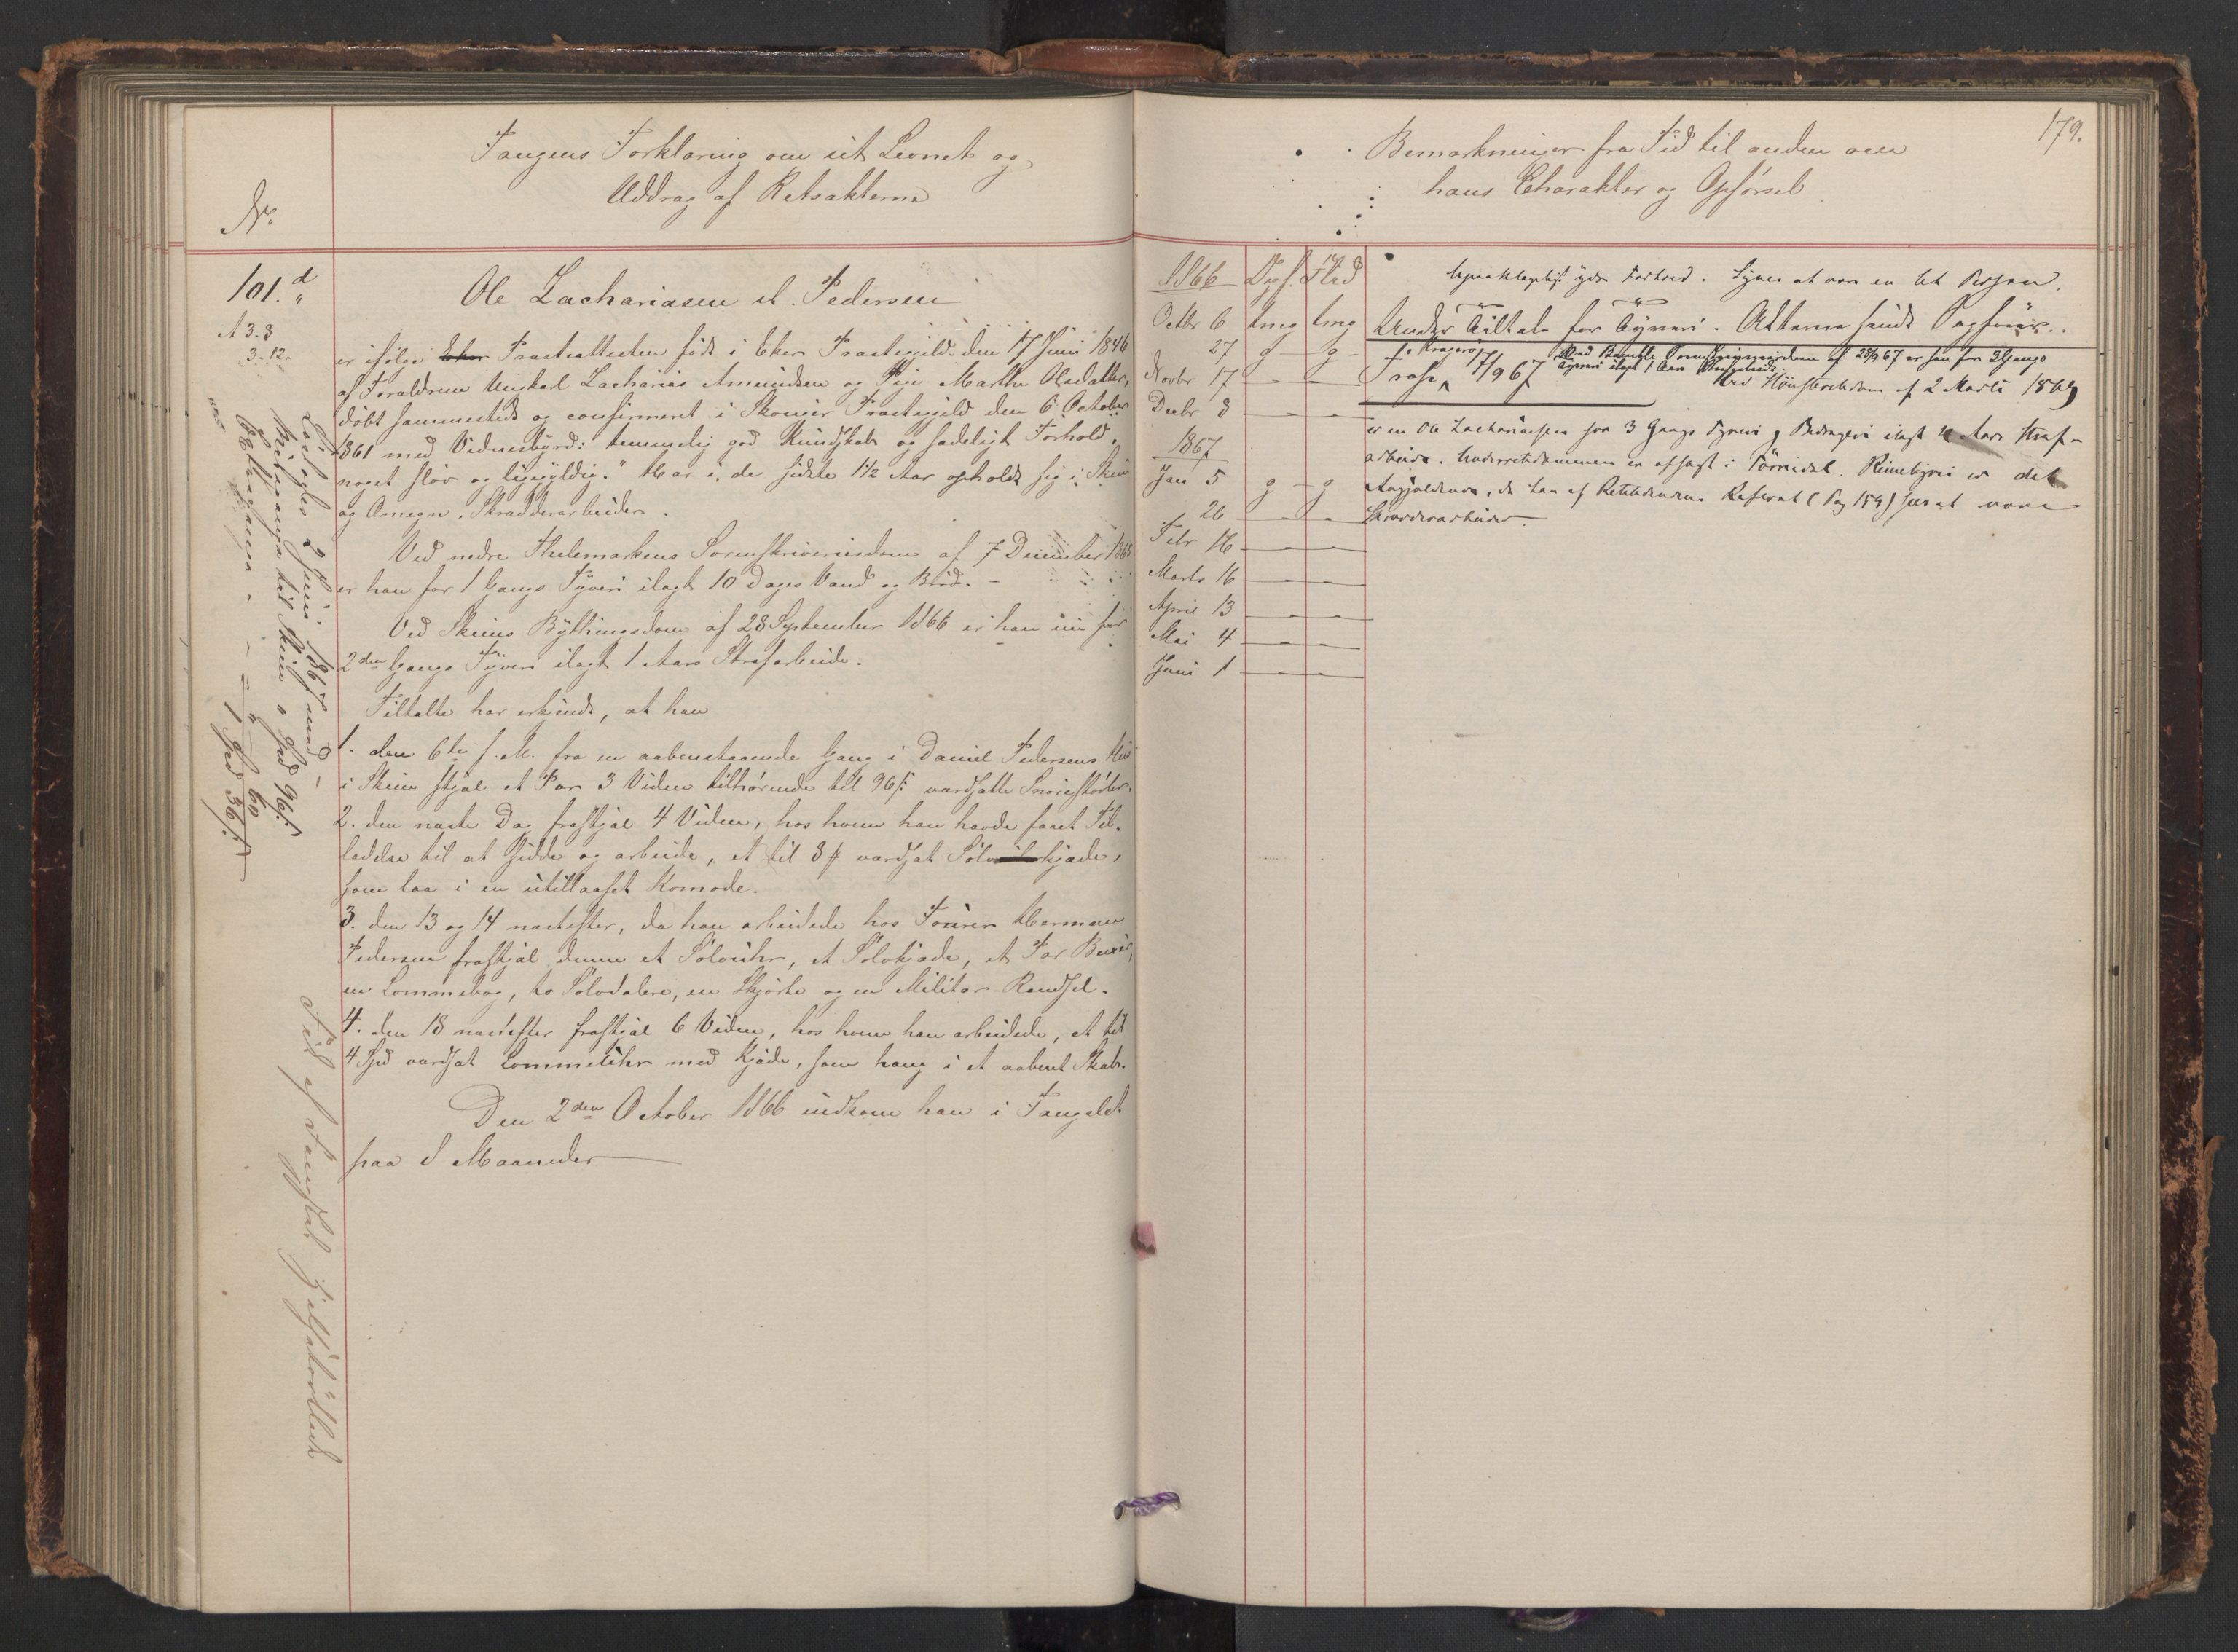 Fangens Forklaring om sit Levnet og
Uddrag af Retsakterne
No.
101.d
A 3.8
3-12-
Ole Zachariasen el. Pedersen
er ifølge Præsteattesten født i Eker Præstegjeld den 17 Juni 1846
af Forældrene Ungkarl Zacharias Amundsen og Pige Marthe Olsdatter,
døbt sammesteds og confirmeret i Skouger Præstegjeld den 6 October
1861 med Vidnesbyrd: temmelig god Kundskab og sædeligt Forhold,
noget sløv og ligegyldig." Har i de sidste 1½ Aar opholdt sig i Skien
og Omegn. Skrædderarbeider.
Ved nedre Thelemarkens Sorenskriveriesdom af 7 December 1865
er han for 1 Gangs Tyveri ilagt 10 Dages Vand og Brød. -
Ved Skiens Bythingsdom af 28 September 1866 er han nu for
2den Gangs Tyveri ilagt 1 Aars Strafarbeide.
Tiltalte har erkjendt, at han
1. den 6te f. M. fra en aabenstaaende Gang i Daniel Pedersens Hus
i Skien stjal et Par 3 Vidne tilhørende til 96 s. værdsatte Snørestøvler.
2. den næste Dag frastjal 4 Vidne, hos hvem han havde faaet Til-
ladelse til at sidde og arbeide, et til 3 værdsat Sølvkjæde,
som laa i en utillaaset Komode.
3. den 13 og 14 næstefter, da han arbeidede hos Fourer Herman
Pedersen frastjal denne et Sølvuhr, et Sølvkjæde, et Par Buxer,
en Lommebog, to Sølvdalere, en Skjorte og en Militær-Randsel.
4. den 18 næstefter frastjal 6 Vidne, hos hvem han arbeidede, et til
4 Spd værdsat Lommeuhr med Kjæde, som hang i et aabent Skab.
Den 2den October 1866 indkom han i Fængslet
paa 8 Maaneder
Løslagdes 2 Juni 1867 med
Reisepenge til Skien " Spd 96 s.
1 Spd 36 s.
179.
Bemærkninger fra Tid til anden om
hans Charakter og Opførsel.
1866 Opf. Flid
Octbr 6 tmg tmg
27 g g
Novbr 17 — —
Decbr 8 — —
1867
Jan 5 g g
26 — —
Febr 16 — —
Marts 16 — —
April 13 — —
Mai 4 — —
Juni 1 — —
Upaaklageligt ydre Forhold. Synes at være en let Person.
Under Tiltale for Tyveri. Akterne sendt
i Kragerø
17/9 67
Ved Bamble Sorenskriveriesdom af 28/9 67 er han for 3 Gangs
Tyveri ilagt 1 Aars
Ved Høiesteretsdom af 2 Marts 1869
er en Ole Zachariassen for 3 Gangs Tyveri og Bedrageri ilagt 4 Aars Straf-
arbeide. Underretsdommen er afsagt i Tørrisdal. Rimeligvis er det
Angjældende, da han af Retstidendens Referat (Pag 159) sees at være
Skrædderarbeider.